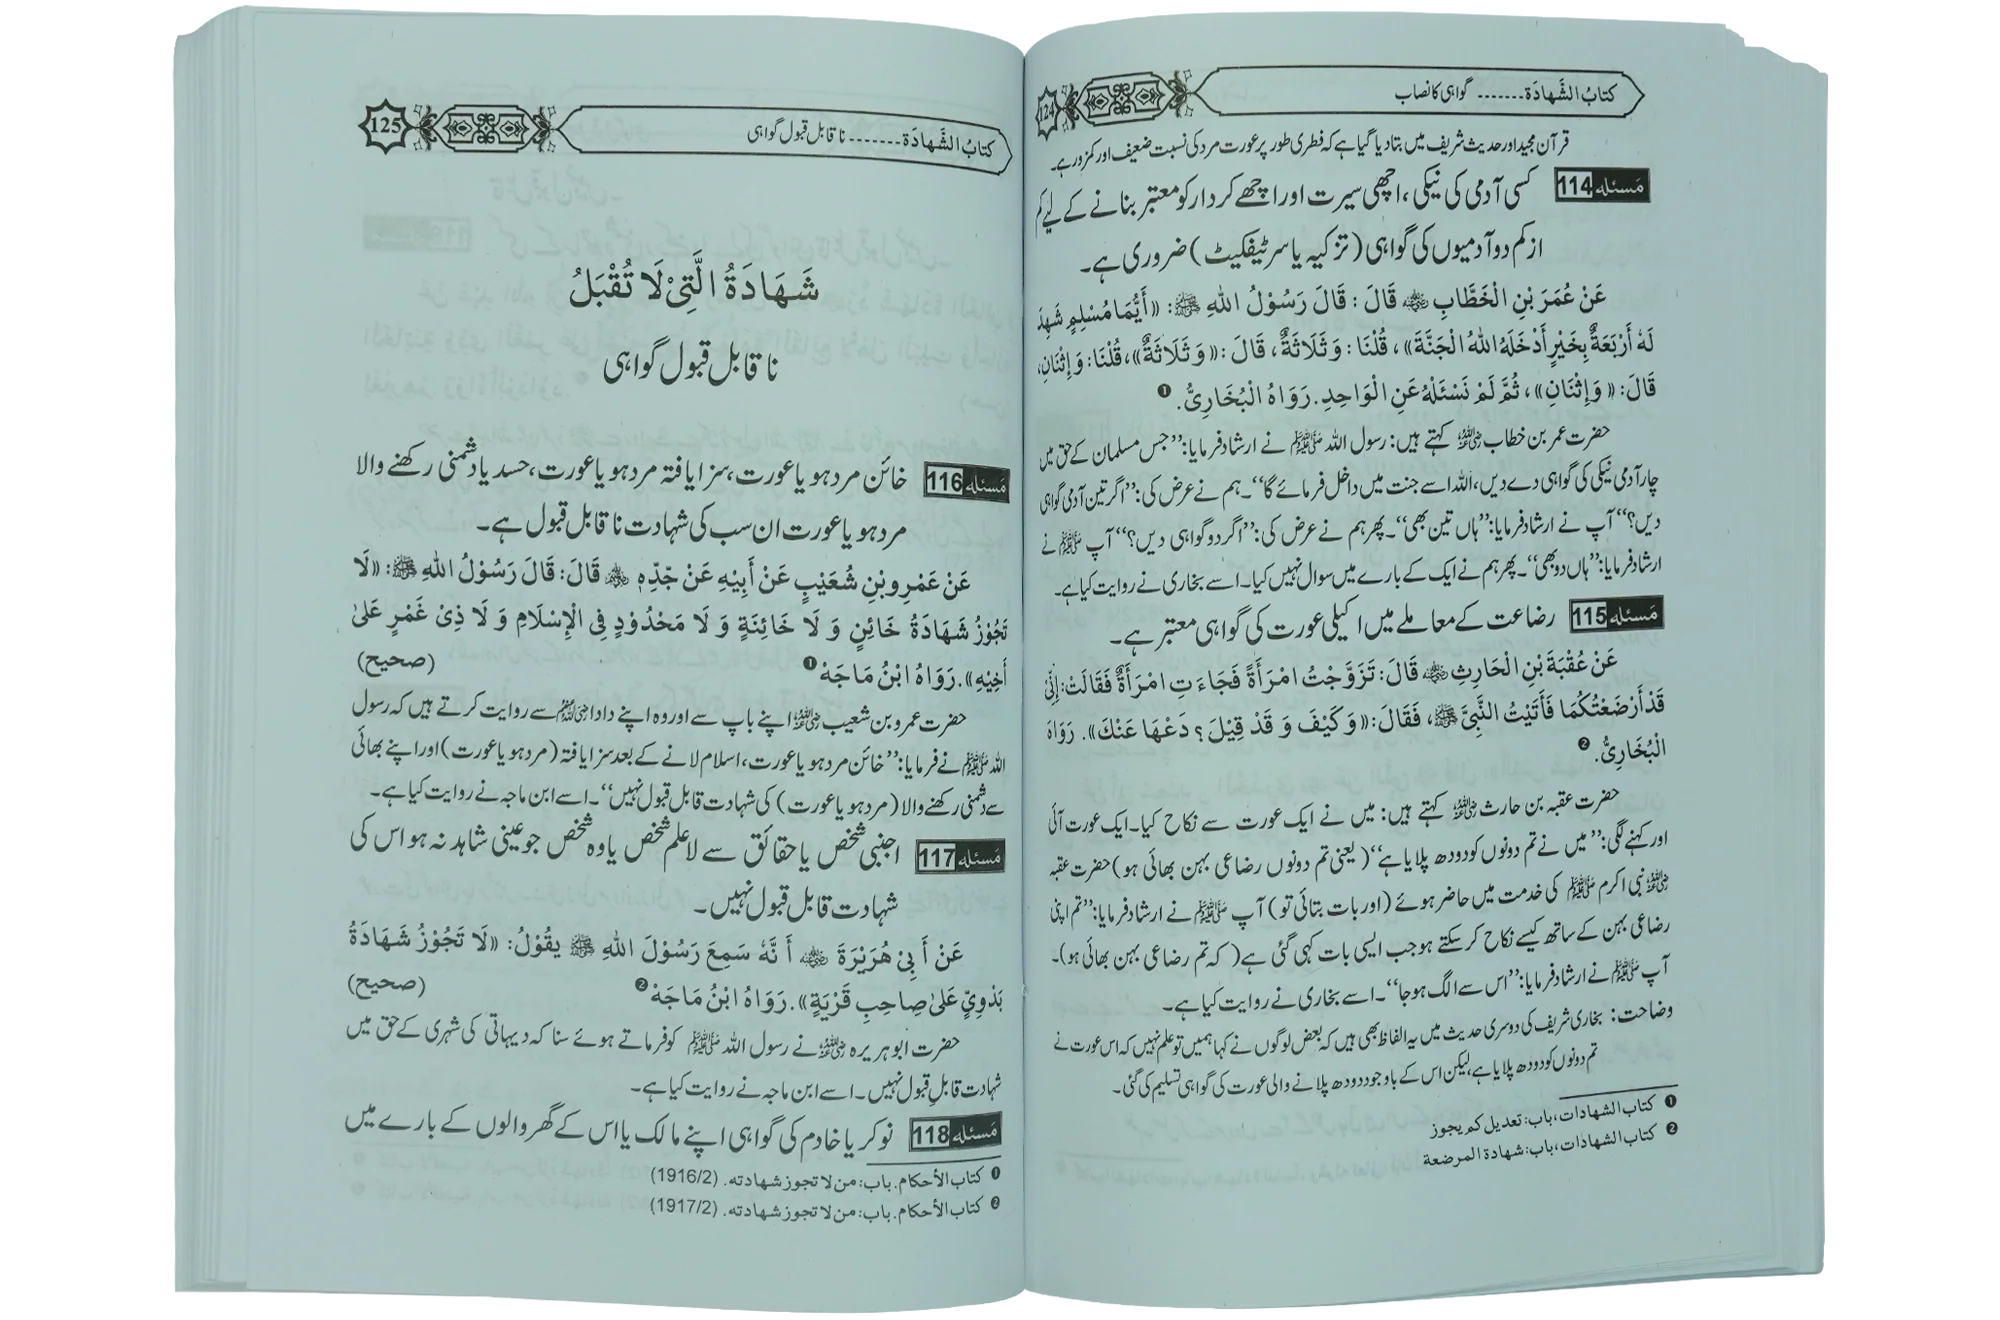 كتابُ الشَّهادَة ....... گواہی کا نصاب
124
قرآن مجید اور حدیث شریف میں بتا دیا گیا ہے کہ فطری طور پر عورت مرد کی نسبت ضعیف اور کمزور ہے۔
مَسئله 114 کسی آدمی کی نیکی، اچھی سیرت اور اچھے کردار کو معتبر بنانے کے لیے کم
از کم دو آدمیوں کی گواہی (تزکیہ یا سرٹیفکیٹ) ضروری ہے۔
عَنْ عُمَرَ بْنِ الْخَطَّابِ ﷜ قَالَ : قَالَ رَسُوْلُ اللهِ ﷺ: «أَيُّمَا مُسْلِمٍ شَهِدَ
لَهٗ أَرْبَعَةٌ بِخَيْرٍ أَدْخَلَهُ اللهُ الْجَنَّةَ» ، قُلْنَا : وَ ثَلَاثَةٌ ، قَالَ : «وَ ثَلَاثَةٌ» ، قُلْنَا : وَ اِثْنَانِ،
قَالَ: «وَ اِثْنَانِ» ، ثُمَّ لَمْ نَسْئَلْهُ عَنِ الْوَاحِدِ. رَوَاهُ الْبُخَارِيُّ. ❶
حضرت عمر بن خطاب ﷜ کہتے ہیں: رسول اللہ ﷺ نے ارشاد فرمایا: ’’جس مسلمان کے حق میں
چار آدمی نیکی کی گواہی دے دیں، اللہ اسے جنت میں داخل فرمائے گا‘‘۔ ہم نے عرض کی: ’’اگر تین آدمی گواہی
دیں؟‘‘ آپ نے ارشاد فرمایا: ’’ہاں تین بھی‘‘۔ پھر ہم نے عرض کی: ’’اگر دو گواہی دیں؟‘‘ آپ ﷺ نے
ارشاد فرمایا: ’’ہاں دو بھی‘‘۔ پھر ہم نے ایک کے بارے میں سوال نہیں کیا۔ اسے بخاری نے روایت کیا ہے۔
مَسئله 115 رضاعت کے معاملے میں اکیلی عورت کی گواہی معتبر ہے۔
عَنْ عُقْبَةَ بْنِ الْحَارِثِ ﷜ قَالَ: تَزَوَّجْتُ امْرَأَةً فَجَاءَتِ امْرَأَةٌ فَقَالَتْ: إِنِّيْ
قَدْ أَرْضَعْتُكُمَا فَأَتَيْتُ النَّبِيَّ ﷺ، فَقَالَ: «وَ كَيْفَ وَ قَدْ قِيْلَ ؟ دَعْهَا عَنْكَ». رَوَاهُ
الْبُخَارِيُّ. ❷
حضرت عقبہ بن حارث ﷜ کہتے ہیں: میں نے ایک عورت سے نکاح کیا۔ ایک عورت آئی
اور کہنے لگی: ’’میں نے تم دونوں کو دودھ پلایا ہے‘‘ (یعنی تم دونوں رضاعی بہن بھائی ہو) حضرت عقبہ
﷜ نبی اکرم ﷺ کی خدمت میں حاضر ہوئے (اور بات بتائی تو) آپ ﷺ نے ارشاد فرمایا: ’’تم اپنی
رضاعی بہن کے ساتھ کیسے نکاح کر سکتے ہو جب ایسی بات کہی گئی ہے (کہ تم رضاعی بہن بھائی ہو)۔
آپ ﷺ نے ارشاد فرمایا: ’’اس سے الگ ہو جا‘‘۔ اسے بخاری نے روایت کیا ہے۔
وضاحت: بخاری شریف کی دوسری حدیث میں یہ الفاظ بھی ہیں کہ بعض لوگوں نے کہا ہمیں تو علم نہیں کہ اس عورت نے
تم دونوں کو دودھ پلایا ہے، لیکن اس کے باوجود دودھ پلانے والی عورت کی گواہی تسلیم کی گئی۔
❶ كتاب الشهادات، باب: تعديل كم يجوز
❷ كتاب الشهادات، باب: شهادة المرضعة
كتابُ الشَّهادَة ....... نا قابل قبول گواہی
125
شَهَادَةُ الَّتِيْ لَا تُقْبَلُ
نا قابل قبول گواہی
مَسئله 116 خائن مرد ہو یا عورت، سزا یافتہ مرد ہو یا عورت، حسد یا دشمنی رکھنے والا
مرد ہو یا عورت ان سب کی شہادت نا قابل قبول ہے۔
عَنْ عَمْرِو بْنِ شُعَيْبٍ عَنْ أَبِيْهِ عَنْ جَدِّهٖ ﷜ قَالَ: قَالَ رَسُوْلُ اللهِ ﷺ: «لَا
تَجُوْزُ شَهَادَةُ خَائِنٍ وَ لَا خَائِنَةٍ وَ لَا مَحْدُوْدٍ فِي الْإِسْلَامِ وَ لَا ذِيْ غَمْرٍ عَلىٰ
أَخِيْهِ». رَوَاهُ ابْنُ مَاجَهْ ❶ (صحيح)
حضرت عمرو بن شعیب ﷜ اپنے باپ سے اور وہ اپنے دادا ﷜ سے روایت کرتے ہیں کہ رسول
اللہ ﷺ نے فرمایا: ’’خائن مرد ہو یا عورت، اسلام لانے کے بعد سزا یافتہ (مرد ہو یا عورت) اور اپنے بھائی
سے دشمنی رکھنے والا (مرد ہو یا عورت) کی شہادت قابل قبول نہیں‘‘۔ اسے ابن ماجہ نے روایت کیا ہے۔
مَسئله 117 اجنبی شخص یا حقائق سے لا علم شخص یا وہ شخص جو عینی شاہد نہ ہو اس کی
شہادت قابل قبول نہیں۔
عَنْ أَبِيْ هُرَيْرَةَ ﷜ أَنَّهٗ سَمِعَ رَسُوْلَ اللهِ ﷺ يَقُوْلُ: «لَا تَجُوْزُ شَهَادَةُ
بَدْوِيٍّ عَلىٰ صَاحِبِ قَرْيَةٍ». رَوَاهُ ابْنُ مَاجَهْ ❷ (صحيح)
حضرت ابو ہریرہ ﷜ نے رسول اللہ ﷺ کو فرماتے ہوئے سنا کہ دیہاتی کی شہری کے حق میں
شہادت قابل قبول نہیں۔ اسے ابن ماجہ نے روایت کیا ہے۔
مَسئله 118 نوکر یا خادم کی گواہی اپنے مالک یا اس کے گھر والوں کے بارے میں
❶ كتاب الأحكام. باب: من لا تجوز شهادته. (1916/2)
❷ كتاب الأحكام. باب: من لا تجوز شهادته. (1917/2)